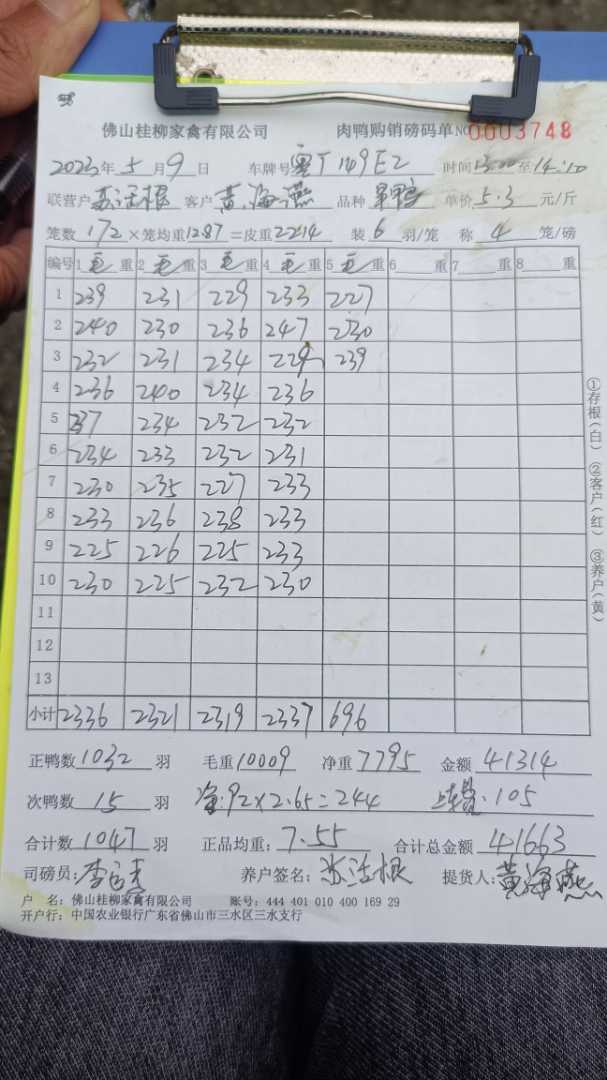 佛山桂柳家禽有限公司 肉鸭购销磅码单 NO 0003748
2023年 5月 9日 车牌号 粤T149E2 时间 13:00至14:10
联营户 苏活根 客户 黄海燕 品种 单价 5.3 元/斤
笼数 172 ×笼均重 12.87 =皮重 2214 装 6 羽/笼 称 4 笼/磅
编号 1 毛 重 2 毛 重 3 毛 重 4 毛 重 5 毛 重 6 重 7 重 8 重
1 239 231 229 233 227
2 240 230 236 247 230
3 232 231 234 229 239
4 236 240 234 236
5 237 234 232 232
6 234 233 232 231
7 230 235 227 233
8 233 236 238 233
9 225 226 225 233
10 230 225 232 230
11
12
13
小计 2336 2321 2319 2337 696
①存根(白) ②客户(红) ③养户(黄)
正鸭数 1032 羽 毛重 10009 净重 7795 金额 41314
次鸭数 15 羽 :92×2.65=244 105
合计数 1047 羽 正品均重: 7.55 合计总金额 41663
司磅员: 李 养户签名: 苏活根 提货人: 黄海燕
户 名: 佛山桂柳家禽有限公司 账号: 444 401 010 400 169 29
开户行: 中国农业银行广东省佛山市三水区三水支行